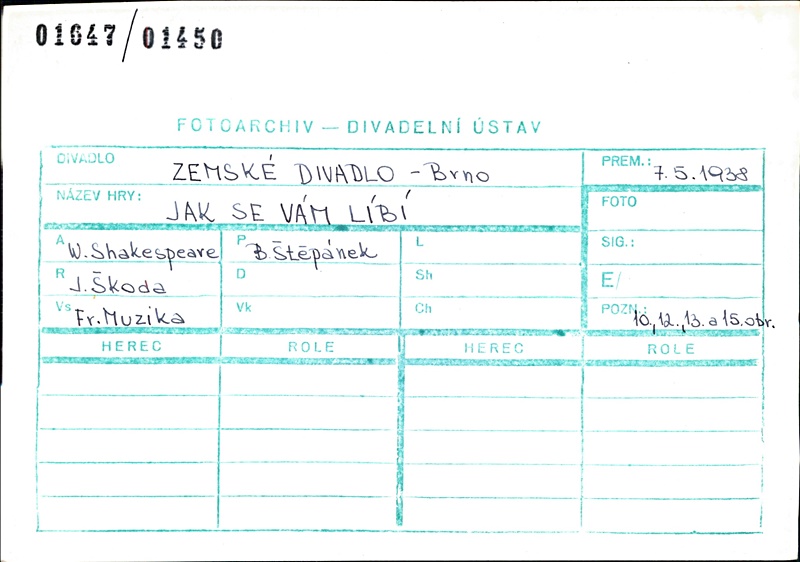 01647/01450
FOTOARCHIV — DIVADELNÍ ÚSTAV
DIVADLO ZEMSKÉ DIVADLO - Brno
PREM.: 7.5.1938
NÁZEV HRY: JAK SE VÁM LÍBÍ
FOTO
A W. Shakespeare P B. Štěpánek L
SIG.:
R J. Škoda D Sh
E/
Vs Fr. Muzika Vk Ch
POZN.: 10., 12., 13. a 15. obr.
HEREC ROLE HEREC ROLE